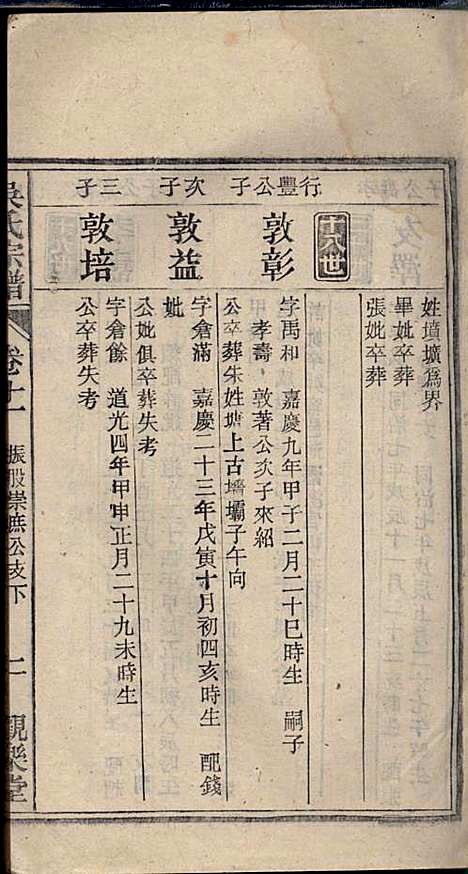 姓墳壙為界
畢妣卒葬
張妣卒葬
十八世
行豐公子
敦彰
字禹和 嘉慶九年甲子二月二十巳時生 嗣子
孝壽 敦著公次子來紹
公卒葬朱姓塘上古墻壩子午向
次子
敦益
字倉滿 嘉慶二十三年戊寅十月初四亥時生 配錢
妣
公妣俱卒葬失考
三子
敦培
字倉餘 道光四年甲申正月二十九未時生
公卒葬失考
吳氏宗譜
卷十一
振股崇庶公支下
二
觀樂堂